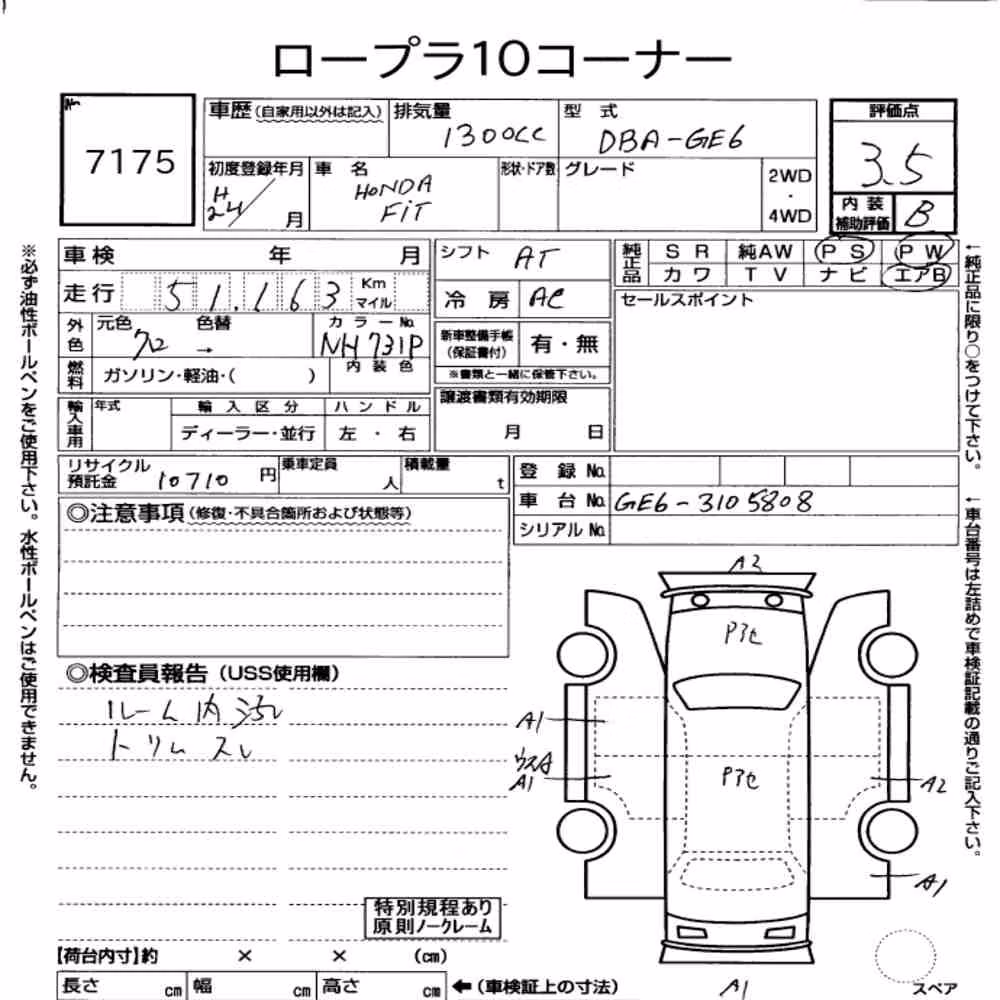 ロープラ10コーナー
No.
7175
車歴(自家用以外は記入)
排気量
1300cc
型 式
DBA-GE6
評価点
3.5
初度登録年月
H
24/ 月
車 名
HONDA
FIT
形状・ドア数
グレード
2WD
・
4WD
内 装
補助評価
B
車検 年 月
シフト AT
純正品
SR 純AW PS PW
カワ TV ナビ エアB
走行 51,163 Km
マイル
冷 房 AC
セールスポイント
外色
元色 色替
クロ →
カラーNo.
NH731P
新車整備手帳
(保証書付)
有・無
※書類と一緒に保管下さい。
燃料
ガソリン・軽油・( )
内装色
譲渡書類有効期限
月 日
輸入車用
年式
輸入区分 ハンドル
ディーラー・並行 左・右
リサイクル
預託金 10710 円
乗車定員
人
積載量
t
登 録 No.
車 台 No. GE6-3105808
シリアル No.
◎注意事項(修復・不具合箇所および状態等)
◎検査員報告(USS使用欄)
ルーム内汚レ
トリムスレ
A2
Pアセ
A1
ウスA
A1
Pアセ
A2
A1
A1
特別規程あり
原則ノークレーム
【荷台内寸】約 × × (cm)
長さ cm 幅 cm 高さ cm ←(車検証上の寸法)
スペア
※必ず油性ボールペンをご使用下さい。水性ボールペンはご使用できません。
←純正品に限り○をつけて下さい。
←車台番号は左詰めで車検証記載の通りご記入下さい。